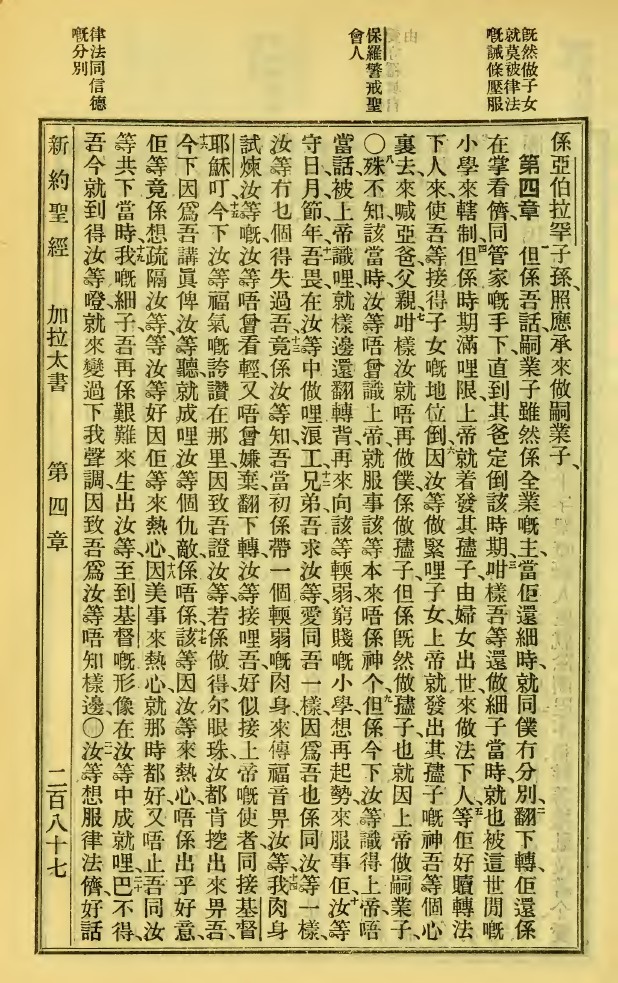 既然做子女
就莫被律法
嘅誡條壓服
保羅警戒聖
會人
律法同信德
嘅分別
係亞伯拉罕子孫、照應承來做嗣業子、
第四章 一但係吾話、嗣業子雖然係全業嘅主、當佢還細時、就同僕冇分別、二翻下轉佢還係
在掌看儕同管家嘅手下、直到其爸定倒該時期、三咁樣吾等還做細子當時、就也被這世間嘅
小學來轄制、四但係時期滿哩限、上帝就着發其孻子、由婦女出世、來做法下人、五等佢好贖轉法
下人、來使吾等接得子女嘅地位倒、六因汝等做緊哩子女、上帝就發出其孻子嘅神、吾等個心
裏去、來喊亞爸、父親、七咁樣汝就唔再做僕、係做孻子、但係既然做孻子、也就因上帝做嗣業子、
〇八殊不知該當時、汝等唔曾識上帝、就服事該等本來唔係神个、九但係今下汝等識得上帝、唔
當話、被上帝識哩、就樣邊還翻轉背、再來向該等輭弱窮賤嘅小學、想再起勢來服事佢、十汝等
守日月節年、十一吾畏在汝等中做哩浪工、十二兄弟、吾求汝等愛同吾一樣、因爲吾也係同汝等一樣、
汝等冇乜個得失過吾、十三竟係汝等知吾當初係帶一個輭弱嘅肉身、來傳福音畀汝等、十四我肉身
試煉汝等嘅、汝等唔曾看輕、又唔曾嫌棄、翻下轉汝等接哩吾、好似接上帝嘅使者、同接基督
耶穌吖、十五今下汝等福氣嘅誇讚在那里、因致吾證汝等、若係做得、尔眼珠汝都肯挖出來畀吾、
十六今下因爲吾講眞俾汝等聽、就成哩汝等個仇敵係唔係、十七該等因汝等來熱心、唔係出乎好意、
佢等竟係想疏隔汝等、等汝等好因佢等來熱心、十八因美事來熱心、就那時都好、又唔止吾同汝
等共下當時、十九我嘅細子、吾再係艱難來生出汝等、至到基督嘅形像在汝等中成就哩、二十巴不得、
吾今就到得汝等嶝、就來變過下我聲調、因致吾爲汝等唔知樣邊、〇二一汝等想服律法儕、好話
新約聖經 加拉太書 第四章 二百八十七